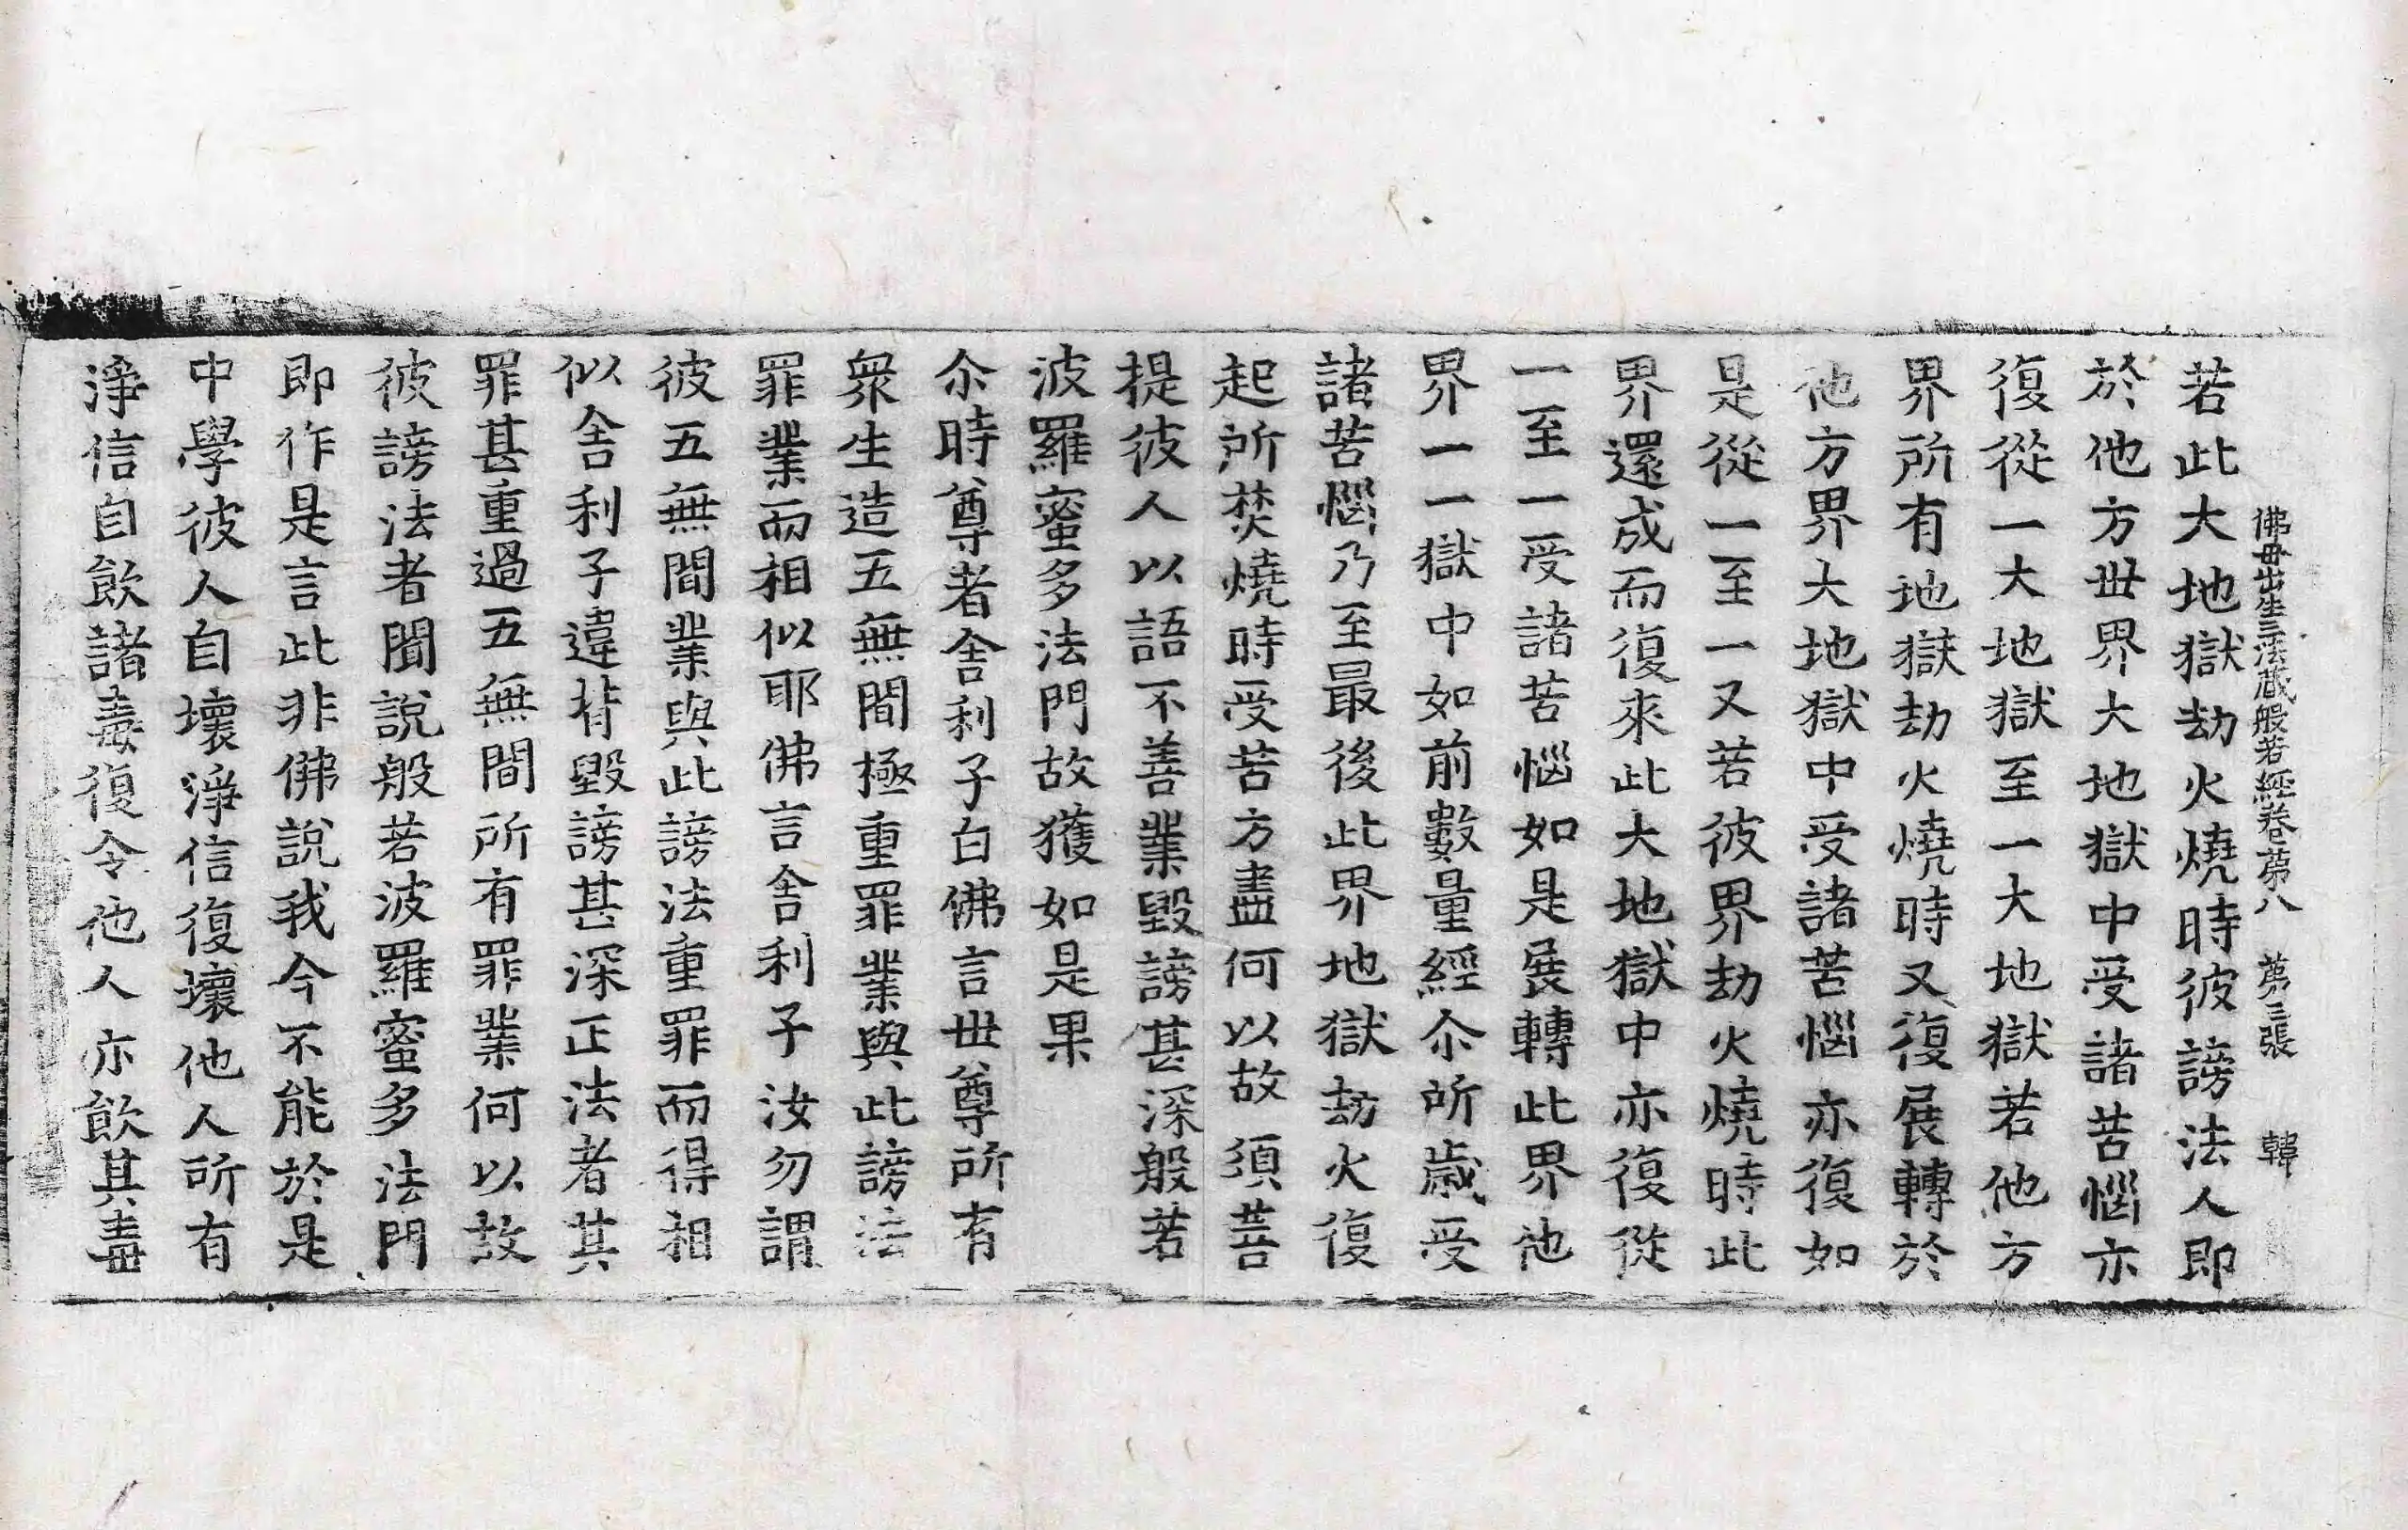 佛毋出生三法蔵般若經卷苐八　苐三張　韓
若此大地獄劫火燒時彼謗法人即
於他方世界大地獄中受諸苦惱亦
復從一大地獄至一大地獄若他方
界所有地獄劫火燒時又復展轉於
他方界大地獄中受諸苦惱亦復如
是從一至一又若彼界劫火燒時此
界還成而復來此大地獄中亦復從
一至一受諸苦惱如是展轉此界他
界一一獄中如前數量經尒所歲受
諸苦惱乃至最後此界地獄劫火復
起所焚燒時受苦方盡何以故須菩
提彼人以語不善業毀謗甚深般若
波羅蜜多法門故獲如是果
尒時尊者舍利子白佛言世尊所有
衆生造五無間極重罪業與此謗法
罪業而相似耶佛言舍利子汝勿謂
彼五無間業與此謗法重罪而得相
似舍利子違背毀謗甚深正法者其
罪甚重過五無間所有罪業何以故
彼謗法者聞說般若波羅蜜多法門
即作是言此非佛說我今不能於是
中學彼人自壞淨信復壞他人所有
淨信自飲諸毒復令他人亦飲其毒